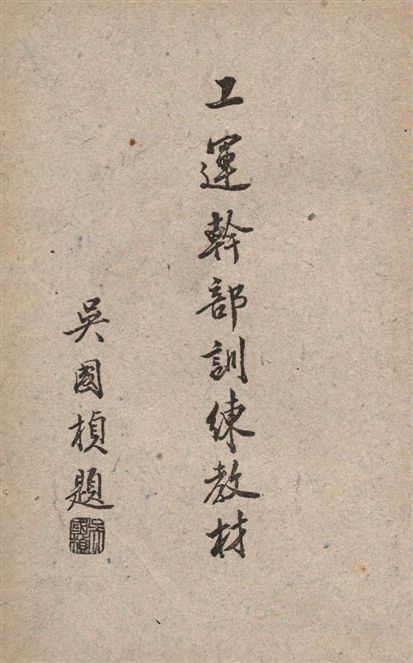 工運幹部訓練教材
吳國楨題
吳國楨